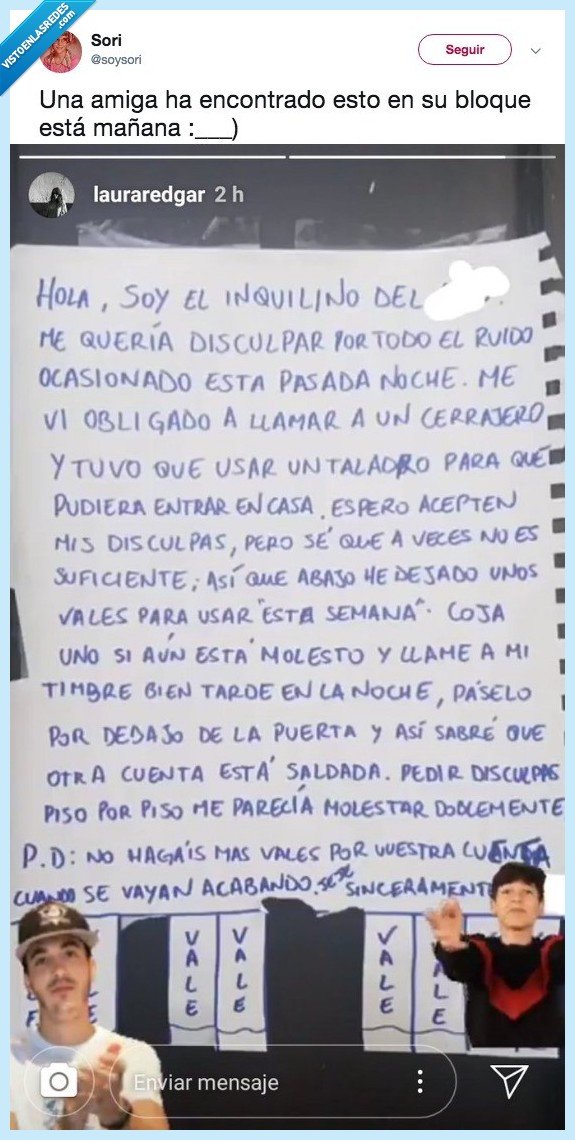 VISTOENLASREDES
.com
Sori
@soysori
Seguir
Una amiga ha encontrado esto en su bloque
está mañana :___)
lauraredgar 2 h
HOLA, SOY EL INQUILINO DEL
ME QUERÍA DISCULPAR POR TODO EL RUIDO
OCASIONADO ESTA PASADA NOCHE. ME
VI OBLIGADO A LLAMAR A UN CERRAJERO
Y TUVO QUE USAR UN TALADRO PARA QUE
PUDIERA ENTRAR EN CASA. ESPERO ACEPTEN
MIS DISCULPAS, PERO SÉ QUE A VECES NO ES
SUFICIENTE; ASÍ QUE ABAJO HE DEJADO UNOS
VALES PARA USAR "ESTA SEMANA". COJA
UNO SI AÚN ESTÁ MOLESTO Y LLAME A MI
TIMBRE BIEN TARDE EN LA NOCHE, PÁSELO
POR DEBAJO DE LA PUERTA Y ASÍ SABRÉ QUE
OTRA CUENTA ESTÁ SALDADA. PEDIR DISCULPAS
PISO POR PISO ME PARECÍA MOLESTAR DOBLEMENTE
P.D: NO HAGÁIS MAS VALES POR VUESTRA CUENTA
CUANDO SE VAYAN ACABANDO. SINCERAMENTE
VALE
VALE
VALE
Enviar mensaje